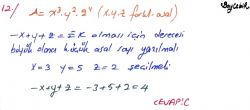 12/ A = x³.y².z⁴ (x.y.z farklı asal)
-x+y+z = EK olması için derecesi
büyük olana küçük asal sayı yazılmalı
x=3 y=5 z=2 seçilmeli
-x+y+z = -3+5+2=4
CEVAP:C